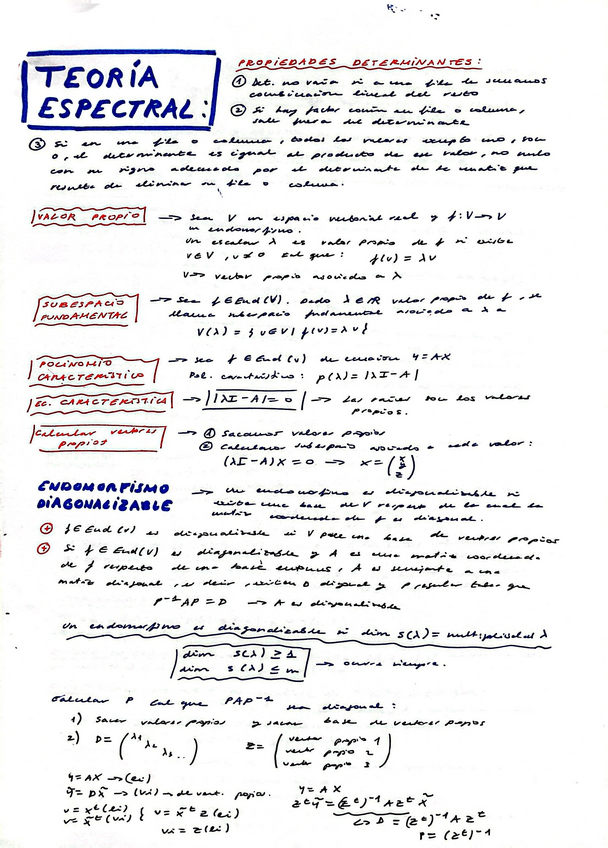 TEORÍA
ESPECTRAL:
PROPIEDADES DETERMINANTES:
① Det. no varía si a una fila le sumamos
combinación lineal del resto
② Si hay factor común en fila o columna,
sale fuera del determinante
③ Si en una fila o columna, todos los valores excepto uno, son
0, el determinante es igual al producto de ese valor, no nulo
con su signo adecuado por el determinante de la matriz que
resulta de eliminar su fila o columna.
VALOR PROPIO → Sea V un espacio vectorial real y f: V → V
un endomorfismo.
Un escalar λ es valor propio de f si existe
v∈V, v≠0 tal que: f(v) = λv
v → vector propio asociado a λ
SUBESPACIO
FUNDAMENTAL
→ Sea f∈End(V). Dado λ∈ℝ valor propio de f, se
llama subespacio fundamental asociado a λ a
V(λ) = {v∈V | f(v)=λv}
POLINOMIO
CARACTERÍSTICO
→ Sea f∈End(V) de ecuación Y=AX
Pol. característico: p(λ) = |λI-A|
EC. CARACTERÍSTICA → |λI-A|=0 → Las raíces son los valores
propios.
Calcular vectores
propios
→ ① Sacamos valores propios
② Calculamos subespacio asociado a cada valor:
(λI-A)X=0 → X = (x y z)
ENDOMORFISMO
DIAGONALIZABLE
→ Un endomorfismo es diagonalizable si
existe una base de V respecto de la cual la
matriz coordenada de f es diagonal.
+ f∈End(V) es diagonalizable si V posee una base de vectores propios
+ Si f∈End(V) es diagonalizable y A es una matriz coordenada
de f respecto de una base, A es semejante a una
matriz diagonal, es decir, existen D diagonal y P regular tales que
P⁻¹AP=D → A es diagonalizable
Un endomorfismo es diagonalizable si dim S(λ) = multiplicidad λ
dim S(λ) ≥ 1
dim S(λ) ≤ m
→ ocurre siempre.
Calcular P tal que PAP⁻¹ sea diagonal:
1) Sacar valores propios y sacar base de vectores propios
2) D = (λ1 λ2 λ3 ..) Z = (vector propio 1
vector propio 2
vector propio 3)
Y=AX → (ei)
Ỹ=DX̃ → (vi) → de vect. propios.
v = xᵗ(ei)
v = x̃ᵗ(vi)
{ v = x̃ᵗ z(ei)
vi = z(ei)
Y=AX
Zᵗ Ỹ = (Zᵗ)⁻¹ A Zᵗ X̃
↳ D = (Zᵗ)⁻¹ A Zᵗ
P = (Zᵗ)⁻¹